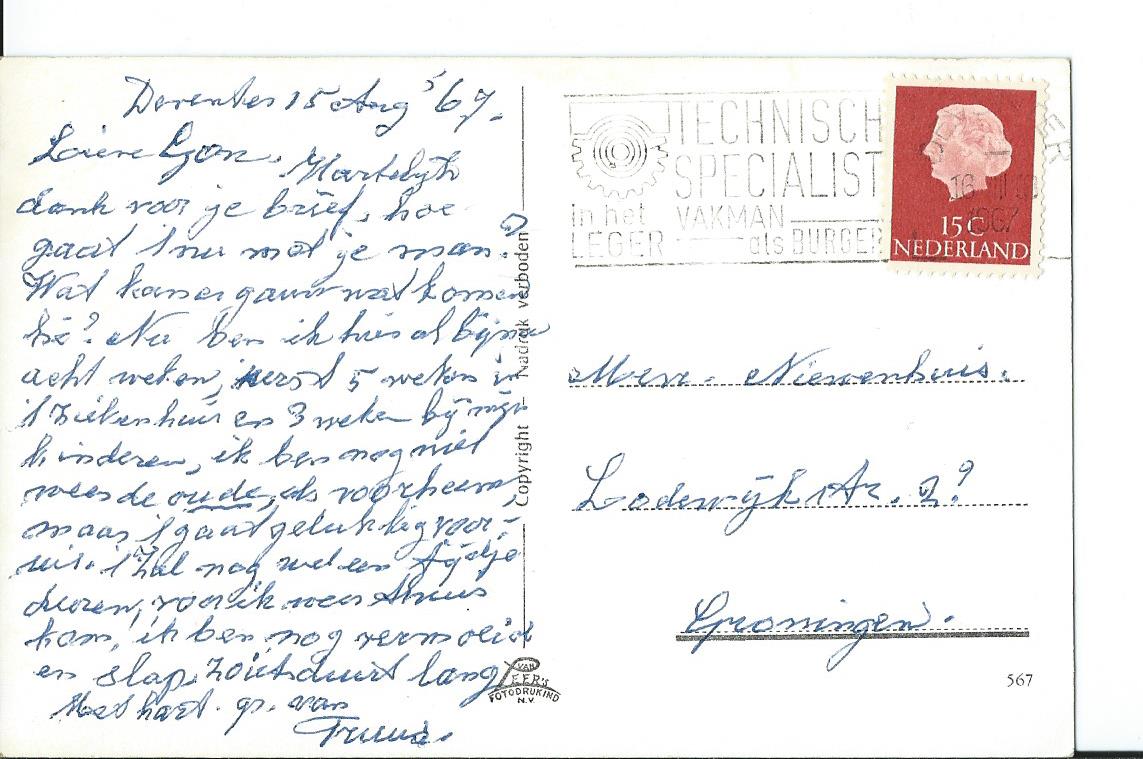 Deventer 15 Aug '67.
Lieve Gon. Hartelijk
dank voor je brief, hoe
gaat 't nu met je man?
Wat kan er gauw wat komen
hè? Nu ben ik hier al bijna
acht weken, eerst 5 weken in
't Ziekenhuis en 3 weken bij mijn
kinderen, ik ben nog niet
weer de oude, als voorheen,
maar 't gaat gelukkig voor-
uit. 't Zal nog wel een tijdje
duren, voor ik weer thuis
kom, ik ben nog vermoeid
en slap, zoiets duurt lang
Met hart. gr. van
Truus.
Copyright - Nadruk verboden
VAN
LEER'S
FOTODRUKIND
N.V.
TECHNISCH
SPECIALIST
in het VAKMAN
LEGER als BURGER
DEVENTER
16 VIII
1967
15 C
NEDERLAND
Mevr. Nieuwenhuis.
Lodewijkstr. 2?
Groningen.
567